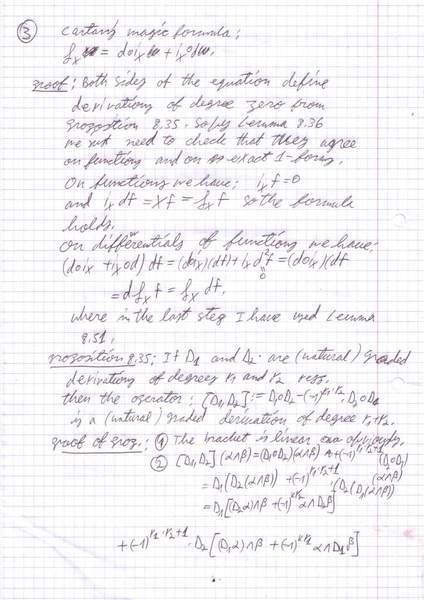 ③ Cartan's magic formula:
£_X ω = d∘i_X ω + i_X∘dω.
proof: Both sides of the equation define
derivations of degree zero from
proposition 8.35. So by Lemma 8.36
we just need to check that they agree
on functions and on exact 1-forms.
On functions we have: i_X f = 0
and i_X df = Xf = £_X f so the formula
holds.
On differentials of functions we have:
(d∘i_X + i_X∘d) df = (d∘i_X)(df) + i_X d²f = (d∘i_X)(df
0
= d£_X f = £_X df.
where in the last step I have used Lemma
8.51.
proposition 8.35: If D₁ and D₂ are (natural) graded
derivations of degrees r₁ and r₂ resp.
then the operator: [D₁,D₂] := D₁∘D₂ - (-1)^{r₁·r₂} D₂∘D₁
is a (natural) graded derivation of degree r₁+r₂.
proof of prop.: ① The bracket is linear obviously.
② [D₁,D₂](α∧β) = (D₁∘D₂)(α∧β) + (-1)^{r₁·r₂+1} (D₂∘D₁)(α∧β)
= D₁(D₂(α∧β)) + (-1)^{r₁·r₂+1} (D₂(D₁(α∧β))
= D₁[(D₂α)∧β + (-1)^{kr₂} α∧D₂β]
+ (-1)^{r₁·r₂+1} · D₂[(D₁α)∧β + (-1)^{kr₁} α∧D₁β]